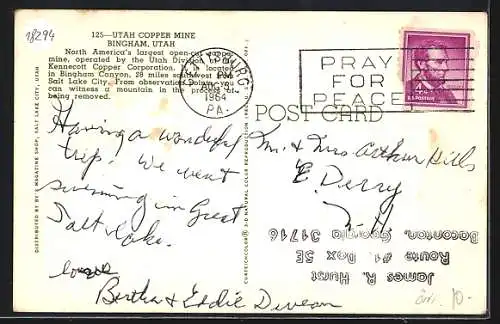 18294
125—UTAH COPPER MINE
BINGHAM, UTAH
North America's largest open-cut copper
mine, operated by the Utah Division of the
Kennecott Copper Corporation. It is located
in Bingham Canyon, 28 miles southwest from
Salt Lake City. From observation points you
can witness a mountain in the process of
being removed.
AUG
1964
PA.
PRAY
FOR
PEACE
4c
U.S. POSTAGE
POST CARD
Having a wonderful
trip. We went
swimming in Great
Salt Lake.
Love
Bertha & Eddie Deveau
Mr. & Mrs Arthur Hills
E. Derry
N. H.
James R. Hurst
Route #1 Box 5E
Baconton, Georgia 31716
DISTRIBUTED BY MAGAZINE SHOP, SALT LAKE CITY, UTAH
CURTEICHCOLOR® 3-D NATURAL COLOR REPRODUCTION
10.-